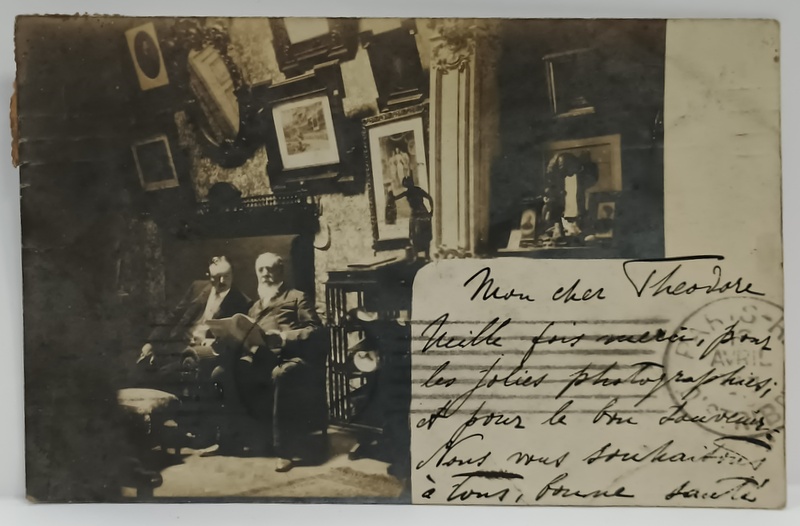 Mon cher Theodore
Mille fois merci, pour
les jolies photographies;
et pour le bon souvenir.
Nous vous souhaitons
à tous, bonne santé
PARIS-R
AVRIL